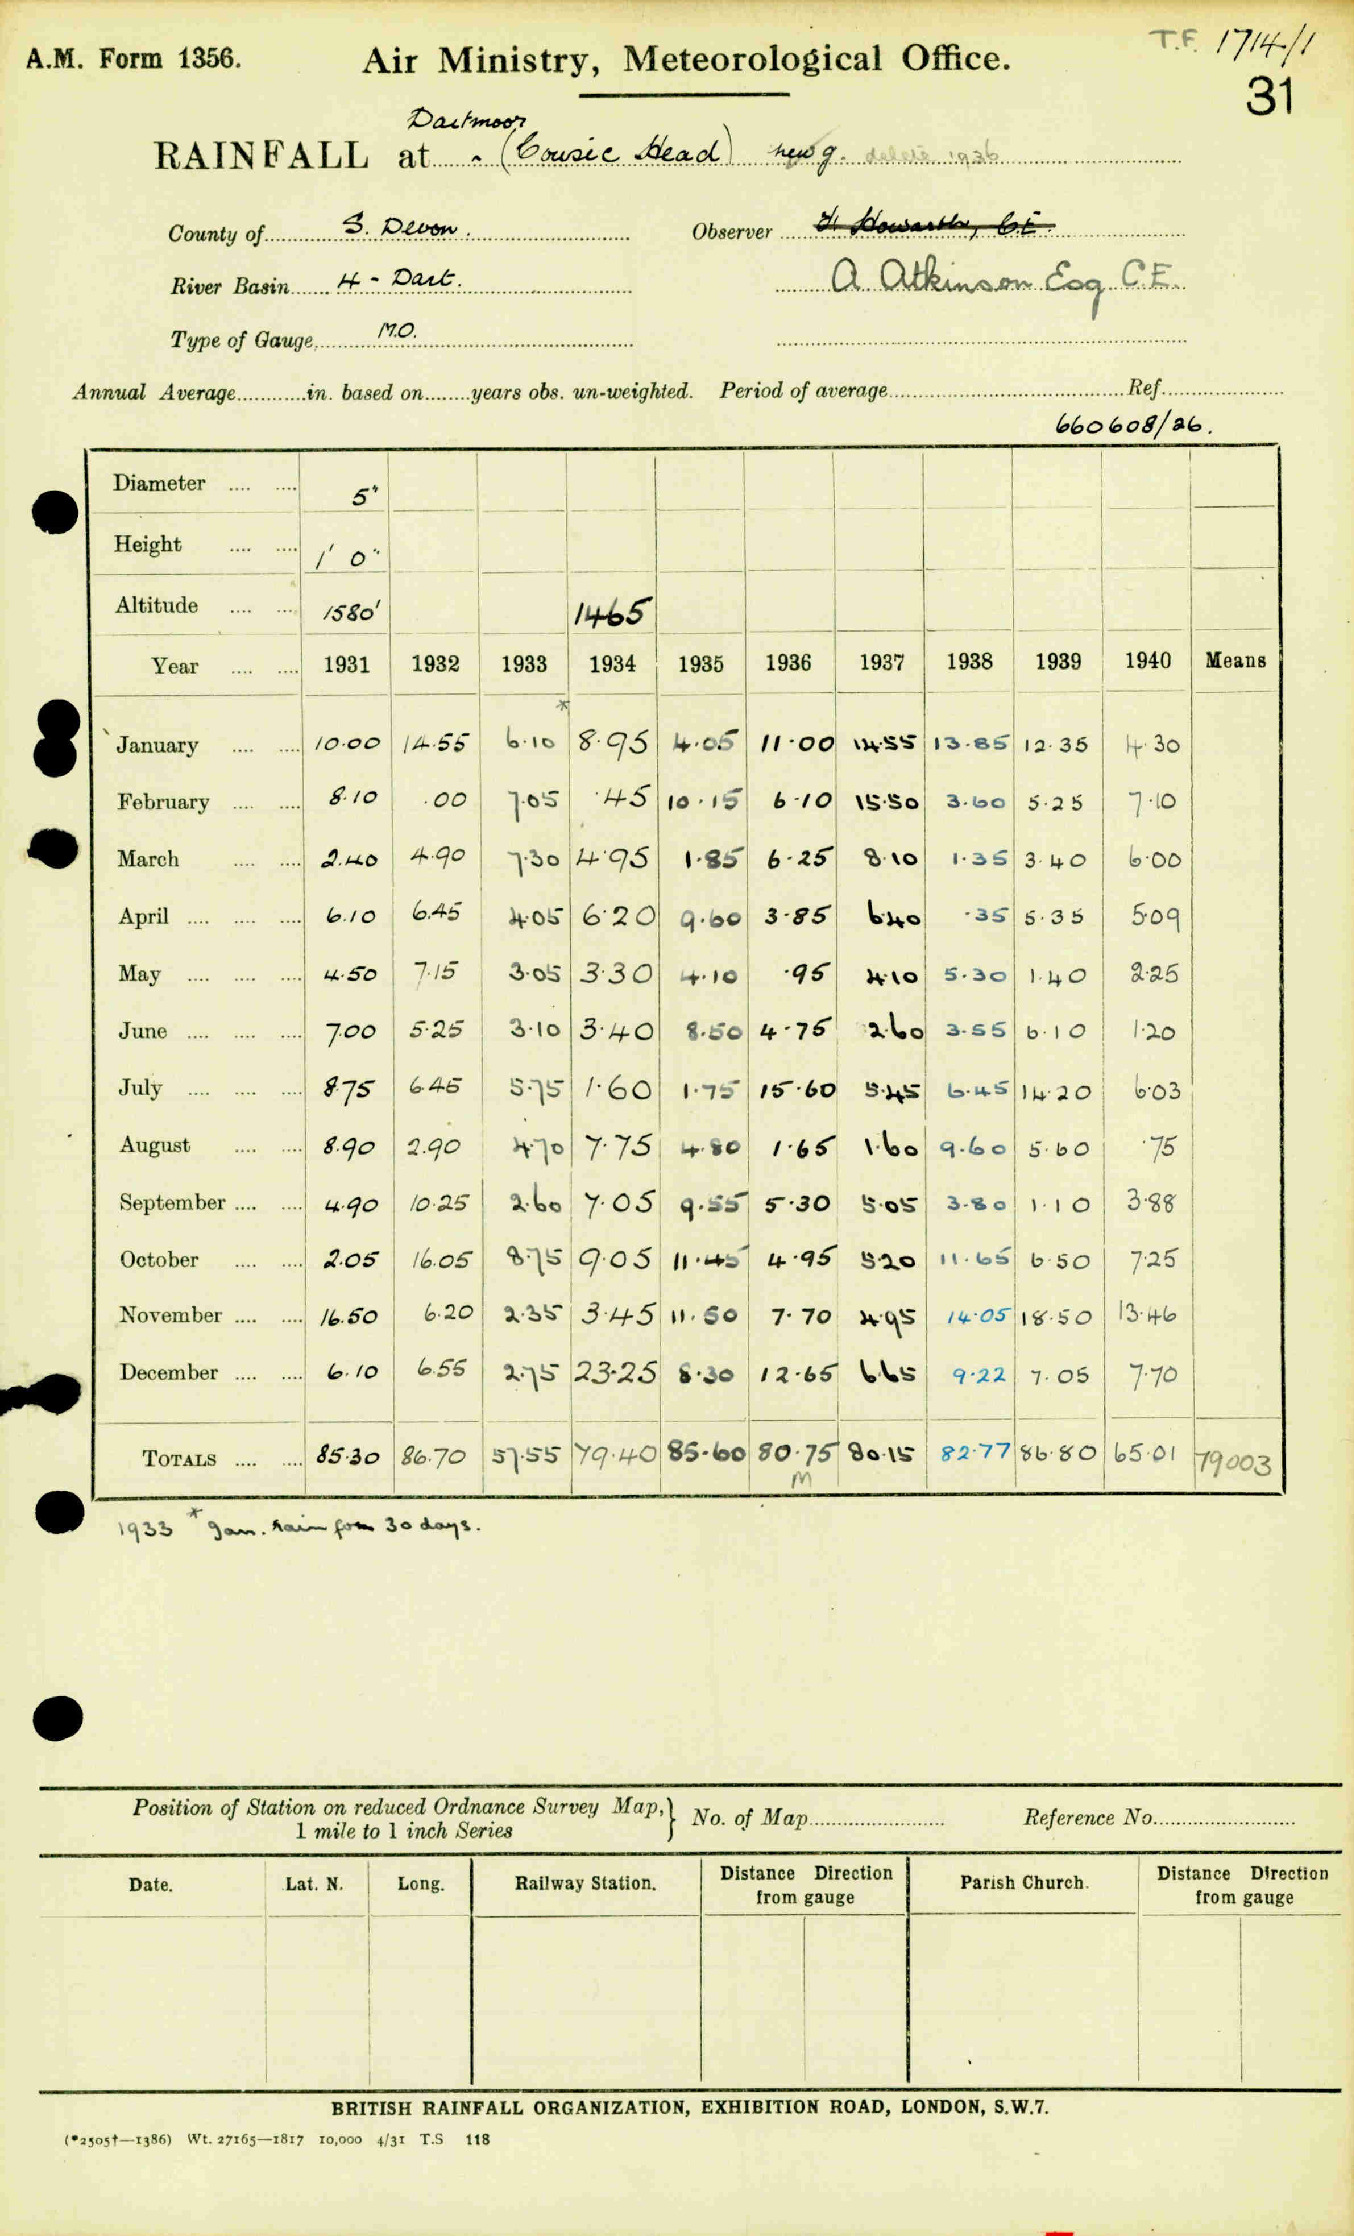 T.F. 1714/1
A.M. Form 1356. Air Ministry, Meteorological Office.
31
Dartmoor
RAINFALL at (Cowsic Head) new g. delete 1936
County of S. Devon. Observer H Howarth, C.E.
River Basin 4 - Dart. A Atkinson Esq C.E.
Type of Gauge M.O.
Annual Average in. based on years obs. un-weighted. Period of average Ref.
660608/26.
Diameter 5"
Height 1' 0"
Altitude 1580' 1465
Year 1931 1932 1933 1934 1935 1936 1937 1938 1939 1940 Means
*
January 10.00 14.55 6.10 8.95 4.05 11.00 14.55 13.85 12.35 4.30
February 8.10 .00 7.05 .45 10.15 6.10 15.50 3.60 5.25 7.10
March 2.40 4.90 7.30 4.95 1.85 6.25 8.10 1.35 3.40 6.00
April 6.10 6.45 4.05 6.20 9.60 3.85 6.40 .35 5.35 5.09
May 4.50 7.15 3.05 3.30 4.10 .95 4.10 5.30 1.40 2.25
June 7.00 5.25 3.10 3.40 8.50 4.75 2.60 3.55 6.10 1.20
July 8.75 6.45 5.75 1.60 1.75 15.60 5.45 6.45 14.20 6.03
August 8.90 2.90 4.70 7.75 4.80 1.65 1.60 9.60 5.60 .75
September 4.90 10.25 2.60 7.05 9.55 5.30 5.05 3.80 1.10 3.88
October 2.05 16.05 8.75 9.05 11.45 4.95 5.20 11.65 6.50 7.25
November 16.50 6.20 2.35 3.45 11.50 7.70 4.95 14.05 18.50 13.46
December 6.10 6.55 2.75 23.25 8.30 12.65 6.65 9.22 7.05 7.70
TOTALS 85.30 86.70 57.55 79.40 85.60 80.75 80.15 82.77 86.80 65.01 79003
M
1933 * Jan. rain for 30 days.
Position of Station on reduced Ordnance Survey Map, } No. of Map Reference No.
1 mile to 1 inch Series
Date. Lat. N. Long. Railway Station. Distance Direction from gauge Parish Church. Distance Direction from gauge
BRITISH RAINFALL ORGANIZATION, EXHIBITION ROAD, LONDON, S.W.7.
(*2505†—1386) Wt. 27165—1817 10,000 4/31 T.S 118